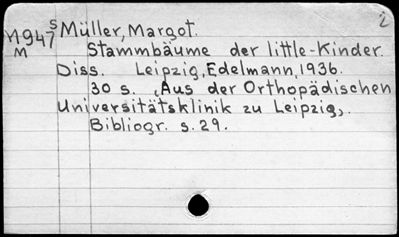 S
M947 Müller, Margot. 2
M Stammbäume der little-Kinder.
Diss. Leipzig, Edelmann, 1936.
30 s. (Aus der Orthopädischen
Universitätsklinik zu Leipzig).
Bibliogr. s. 29.